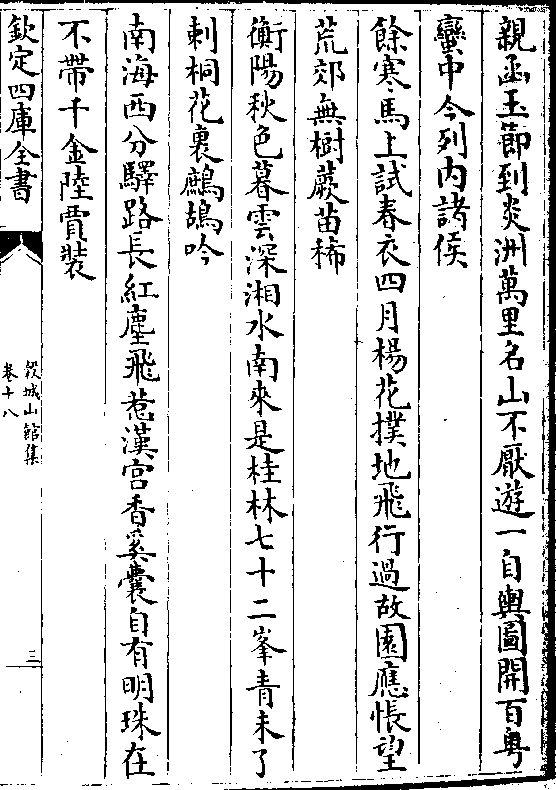 親函玉節到炎洲萬里名山不厭遊一自輿圖開百粤
蠻中今列内諸侯
餘寒馬上試春衣四月楊花撲地飛行過故園應悵望
荒郊無樹蕨苗稀
衡陽秋色暮雲深湘水南來是桂林七十二峯青未了
刺桐花裏鷓鴣吟
南海西分驛路長紅塵飛惹漢宫香奚囊自有明珠在
不帶千金陸賈裝
欽定四庫全書
穀城山館集
卷十八
三